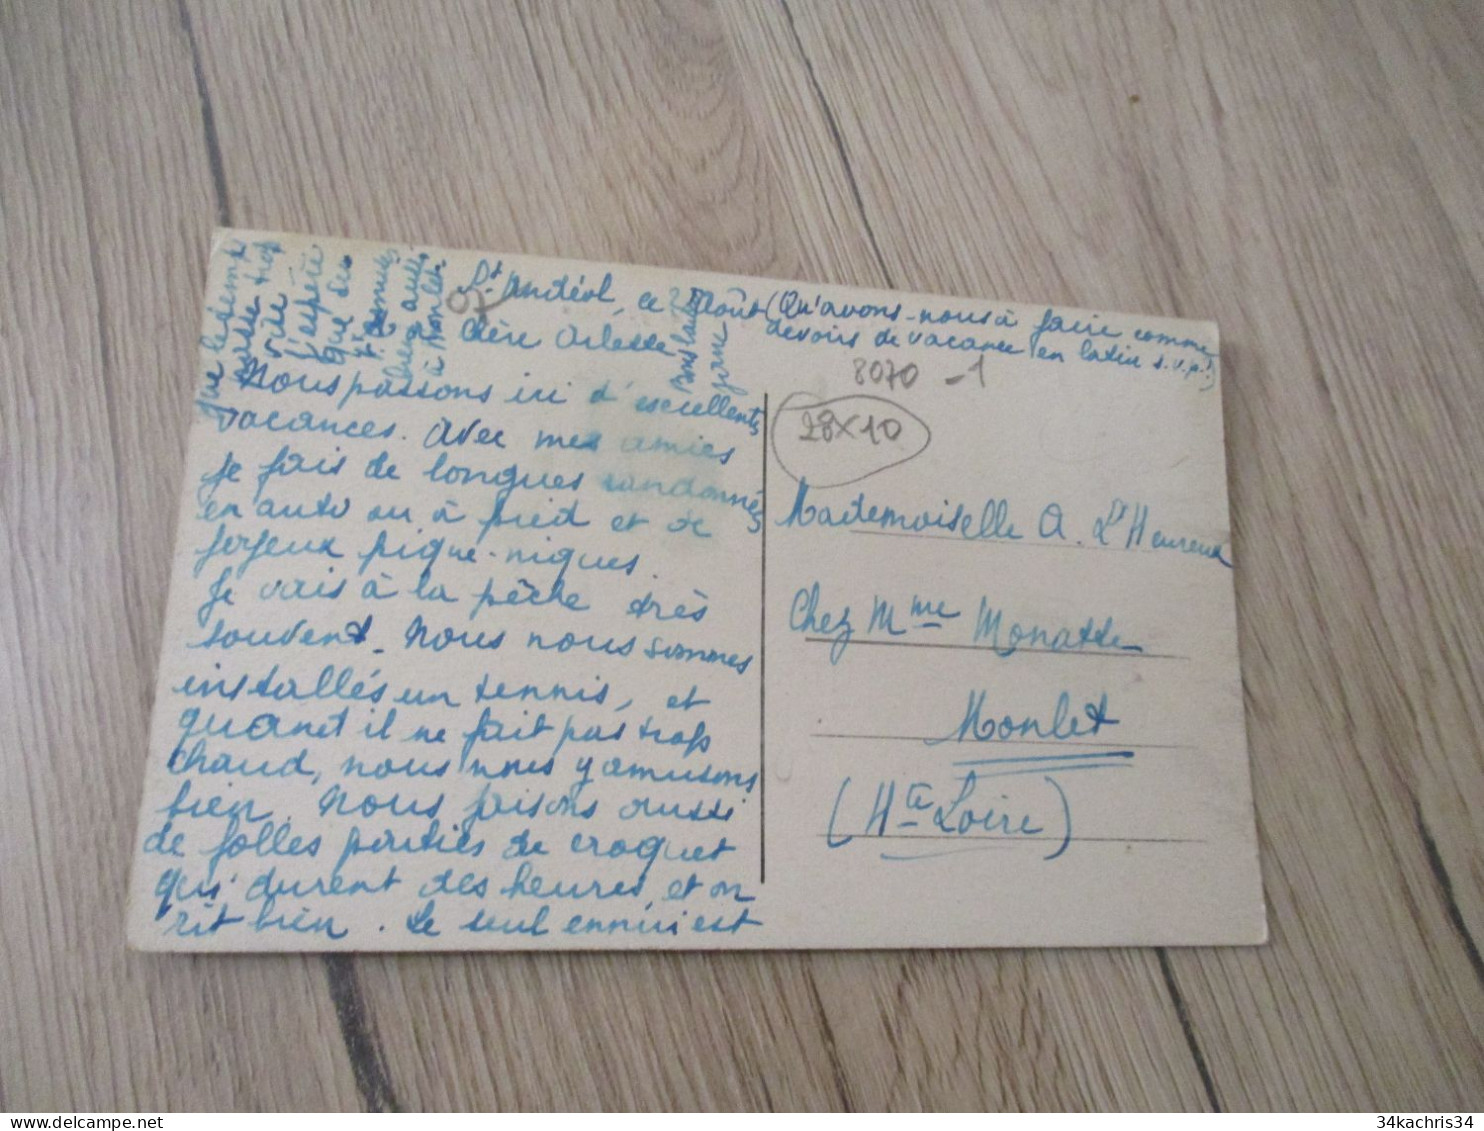 St Andéol, ce Août (Qu'avons-nous à faire comme
devoirs de vacance en latin s.v.p.!)
Chère Arlette
Nous passons ici d'excellentes
vacances. Avec mes amies
je fais de longues randonnées
en auto ou à pied et de
joyeux pique-niques.
Je vais à la pêche très
souvent. Nous nous sommes
installés un tennis, et
quand il ne fait pas trop
chaud, nous nous y amusons
bien. Nous faisons aussi
de folles parties de croquet
qui durent des heures, et on
rit bien. Le seul ennui est
que le temps
passe trop
vite
J'espère
que tu
t'amuses
bien aussi
à Monlet.
Bons baisers
07
8070 -1
28x10
Mademoiselle A. L'Heureux
Chez Mme Monatte
Monlet
(Hte Loire)
34kachris34